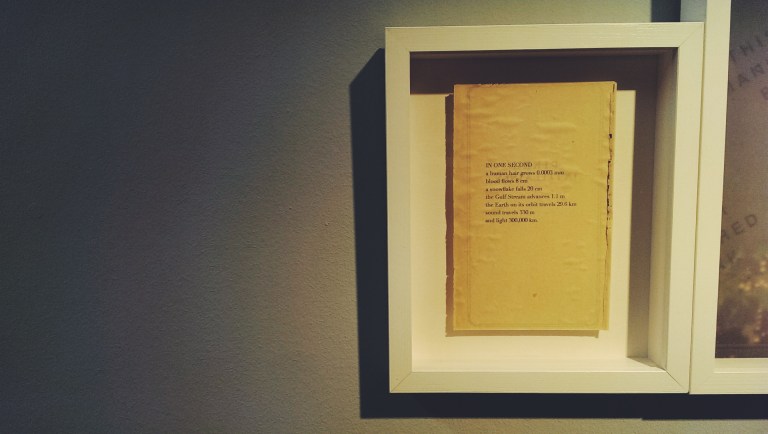 IN ONE SECOND
a human hair grows 0.0003 mm
blood flows 8 cm
a snowflake falls 20 cm
the Gulf Stream advances 1.1 m
the Earth on its orbit travels 29.6 km
sound travels 330 m
and light 300,000 km
THIS
RED